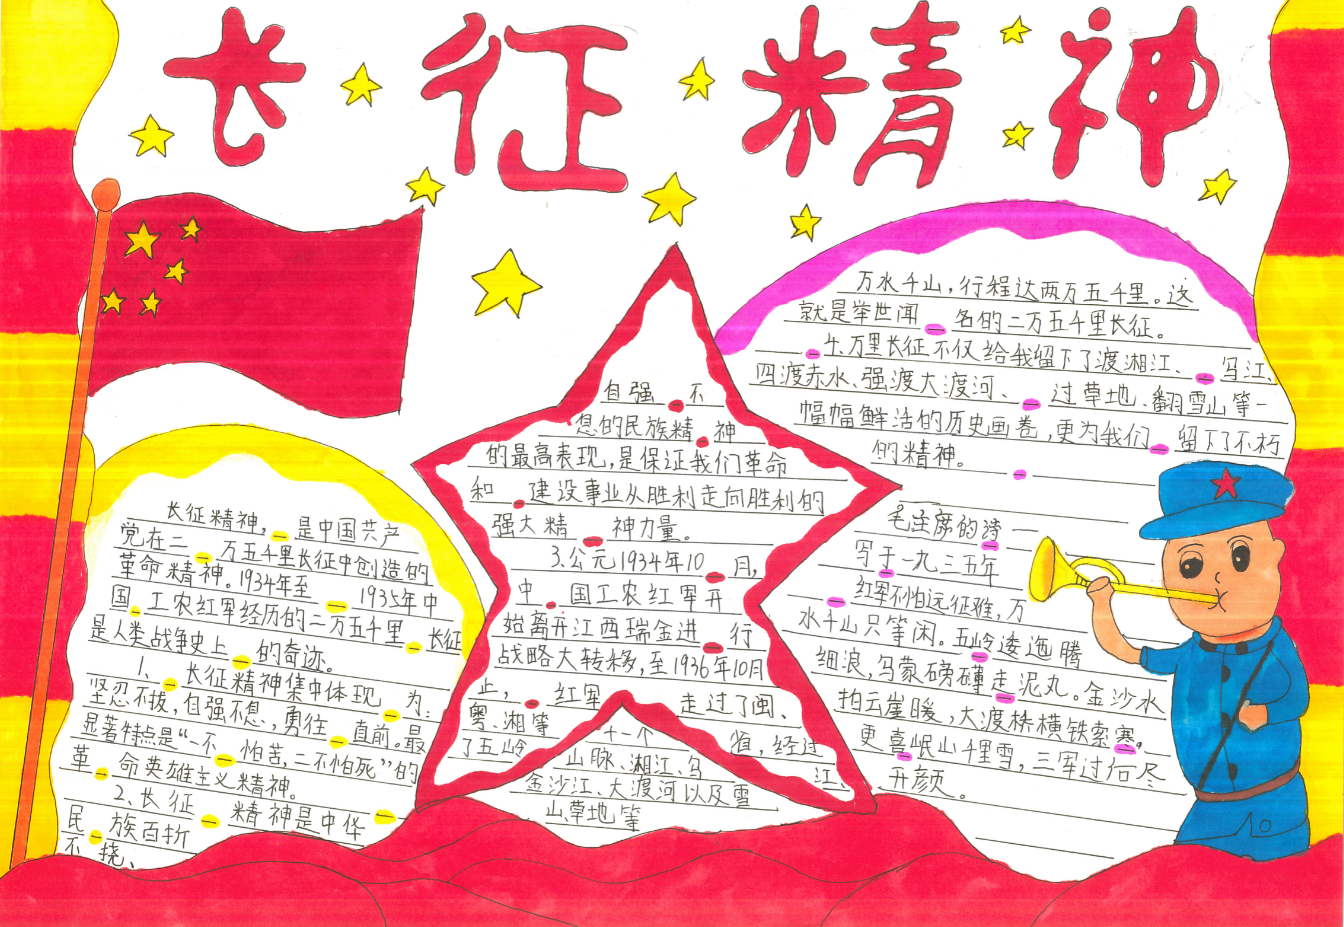 长征精神
长征精神，是中国共产
觉在二万五千里长征中创造的
革命精神。1934年至1935年中
国工农红军经历的二万五千里长征
是人类战争史上的奇迹。
1、长征精神集中体现为：
坚忍不拔，自强不息，勇往直前。最
显著特点是“一不怕苦，二不怕死”的
革命英雄主义精神。
2、长征精神是中华
民族百折
不挠、
自强不
息的民族精神
的最高表现，是保证我们革命
和建设事业从胜利走向胜利的
强大精神力量。
3.公元1934年10月，
中国工农红军开
始离开江西瑞金进行
战略大转移，至1936年10月
止，红军走过了闽、
粤、湘等十一个省，经过
了五岭山脉、湘江、乌江、
金沙江、大渡河以及雪
山草地等
万水千山，行程达两万五千里。这
就是举世闻名的二万五千里长征。
4.万里长征不仅给我留下了渡湘江、乌江、
四渡赤水、强渡大渡河、过草地、翻雪山等一
幅幅鲜活的历史画卷，更为我们留下了不朽
的精神。
毛主席的诗
写于一九三五年
红军不怕远征难，万
水千山只等闲。五岭逶迤腾
细浪，乌蒙磅礴走泥丸。金沙水
拍云崖暖，大渡桥横铁索寒。
更喜岷山千里雪，三军过后尽
开颜。